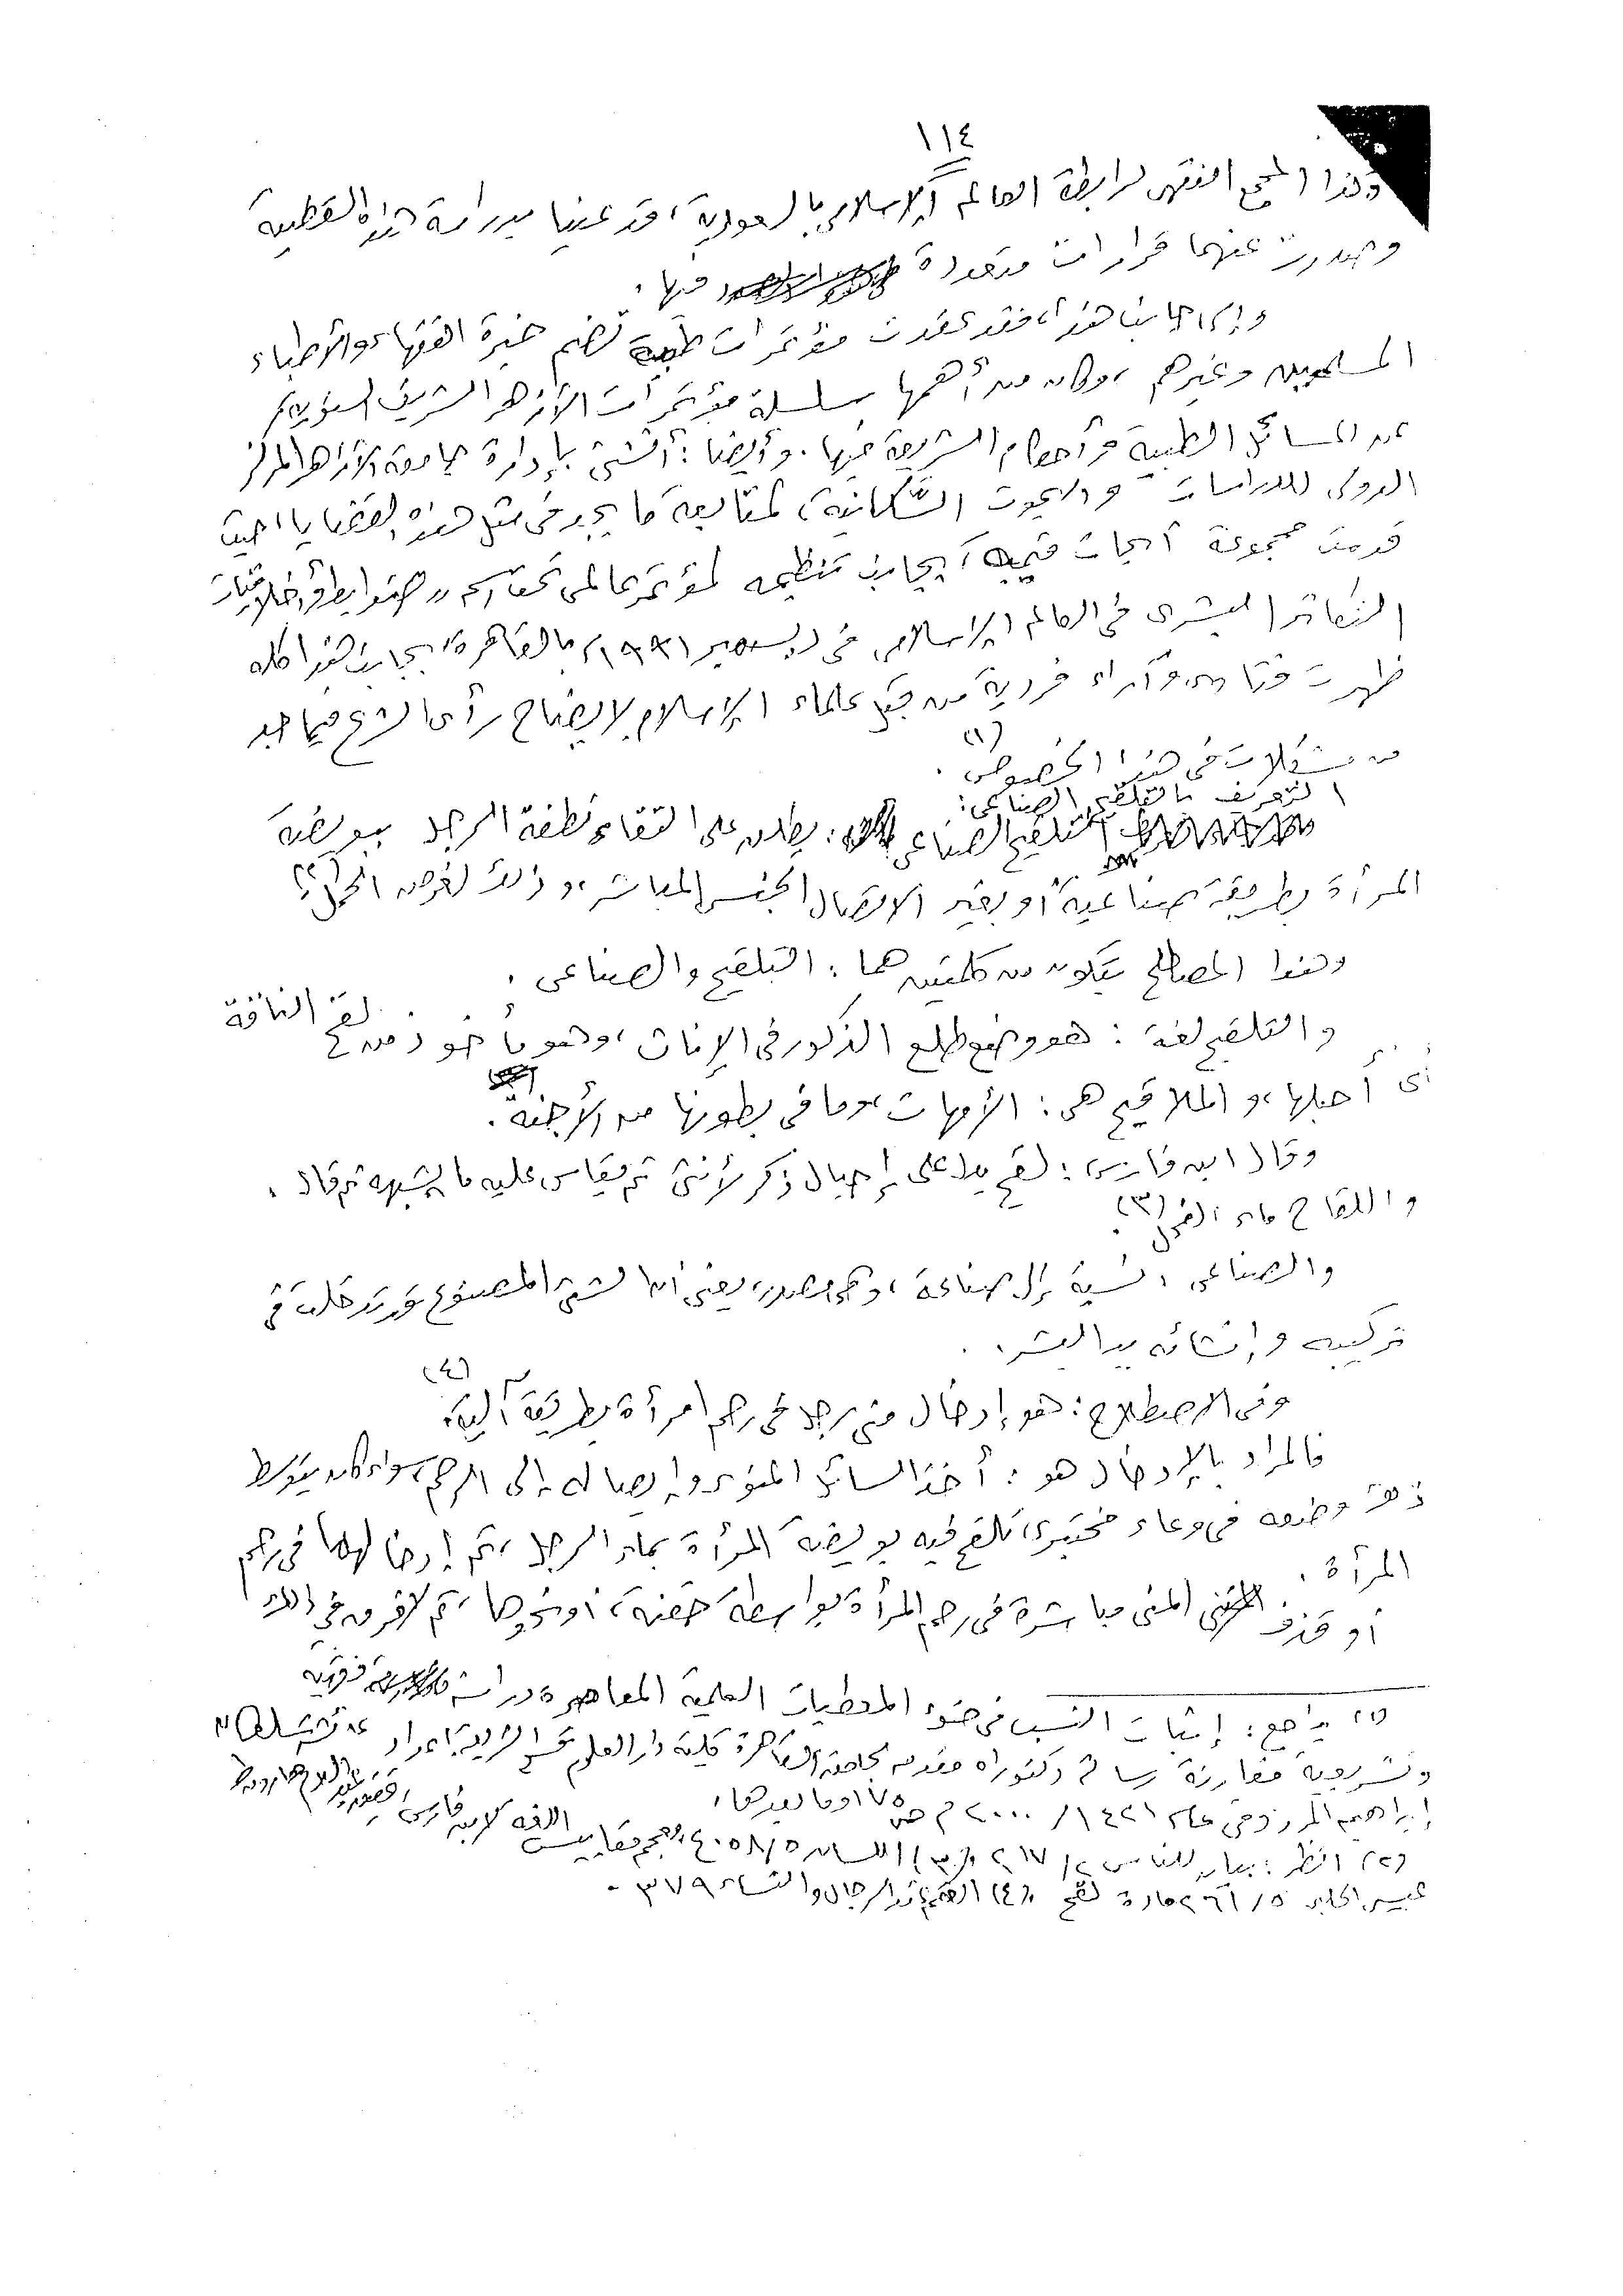 ١١٤
وكذا المجمع الفقهى لرابطة العالم الإسلامى بالسعودية، قد عنيا بدراسة هذه القضية
وصدرت عنهما قرارات متعددة فيها.
وإلى جانب هذا، فقد عقدت مؤتمرات طبية تضم خيرة الفقهاء والأطباء
المسلمين وغيرهم، وكان من أهمها سلسلة مؤتمرات الأزهر الشريف السنوية
عن المسائل الطبية وأحكام الشريعة فيها. وأيضا: أنشئ بإدارة جامعة الأزهر المركز
الدولى للدراسات والبحوث السُّكانية، لمتابعة ما يجد فى مثل هذه القضايا، حيث
قدمت مجموعة أبحاث قيمة، بجانب تنظيمه لمؤتمر عالمى تحت اسم "ضوابط وأخلاقيات
التكاثر البشرى فى العالم الإسلامى فى ديسمبر ١٩٩١، بالقاهرة، بجانب هذا كله
ظهرت فتاوى وآراء فردية من قبل علماء الإسلام لإيضاح رأى الشرع فيما جد
من مشكلات فى هذا الخصوص (١).
التعريف بالتلقيح الصناعى:
التلقيح الصناعى: يطلق على التقاء نطفة الرجل ببويضة
المرأة بطريقة صناعية أو بغير الاتصال الجنسى المباشر، وذلك لغرض الحمل (٢)
وهذا المصطلح يتكون من كلمتين هما: التلقيح والصناعى.
والتلقيح لغة: هو وضع طلع الذكور فى الإناث، وهو مأخوذ من لقح الناقة
أى أحبلها، والملاقيح هى: الأمهات، وما فى بطونها من الأجنة.
وقال ابن فارس: لقح يدل على إحبال ذكر لأنثى ثم يقاس عليه ما يشبهه ثم قال،
واللقاح ماء الفحل (٣).
والصناعى، نسبة إلى صناعة، وهى مصدر، يعنى أن الشئ المصنوع قد تدخلت فى
تركيبه وإنشائه يد البشر.
وفى الاصطلاح: هو إدخال منى رجل فى رحم امرأة بطريقة آلية (٤)
فالمراد بالإدخال هو: أخذ السائل المنوى وإيصاله إلى الرحم، سواء كان بتوسط
وضعه فى وعاء مختبرى تلقح فيه بويضة المرأة بماء الرجل، ثم إدخالها فى رحم
المرأة،
أو قذف المنى مباشرة فى رحم المرأة بواسطة حقنة، أو نحوها، ثم لا فرق فى ذلك
(١) يراجع: إثبات النسب فى ضوء المعطيات العلمية المعاصرة، دراسة فقهية
وتشريعية مقارنة رسالة دكتوراه مقدمة بجامعة القاهرة كلية دار العلوم قسم الشريعة إعداد
إبراهيم المرزوقى عام ١٤٢١/ ٢٠٠٠م ص ١٧٥ وما بعدها،
(٢) انظر: بيان للناس ٢/ ٢١٧، (٣) اللسان ٥/ ٤٠٥٨، معجم مقاييس اللغة لابن فارس، تحقيق عبد السلام هارون ط
عيسى الحلبى ٥/ ٢٦١ مادة لقح (٤) العقم عند الرجال والنساء ٣٧٩.